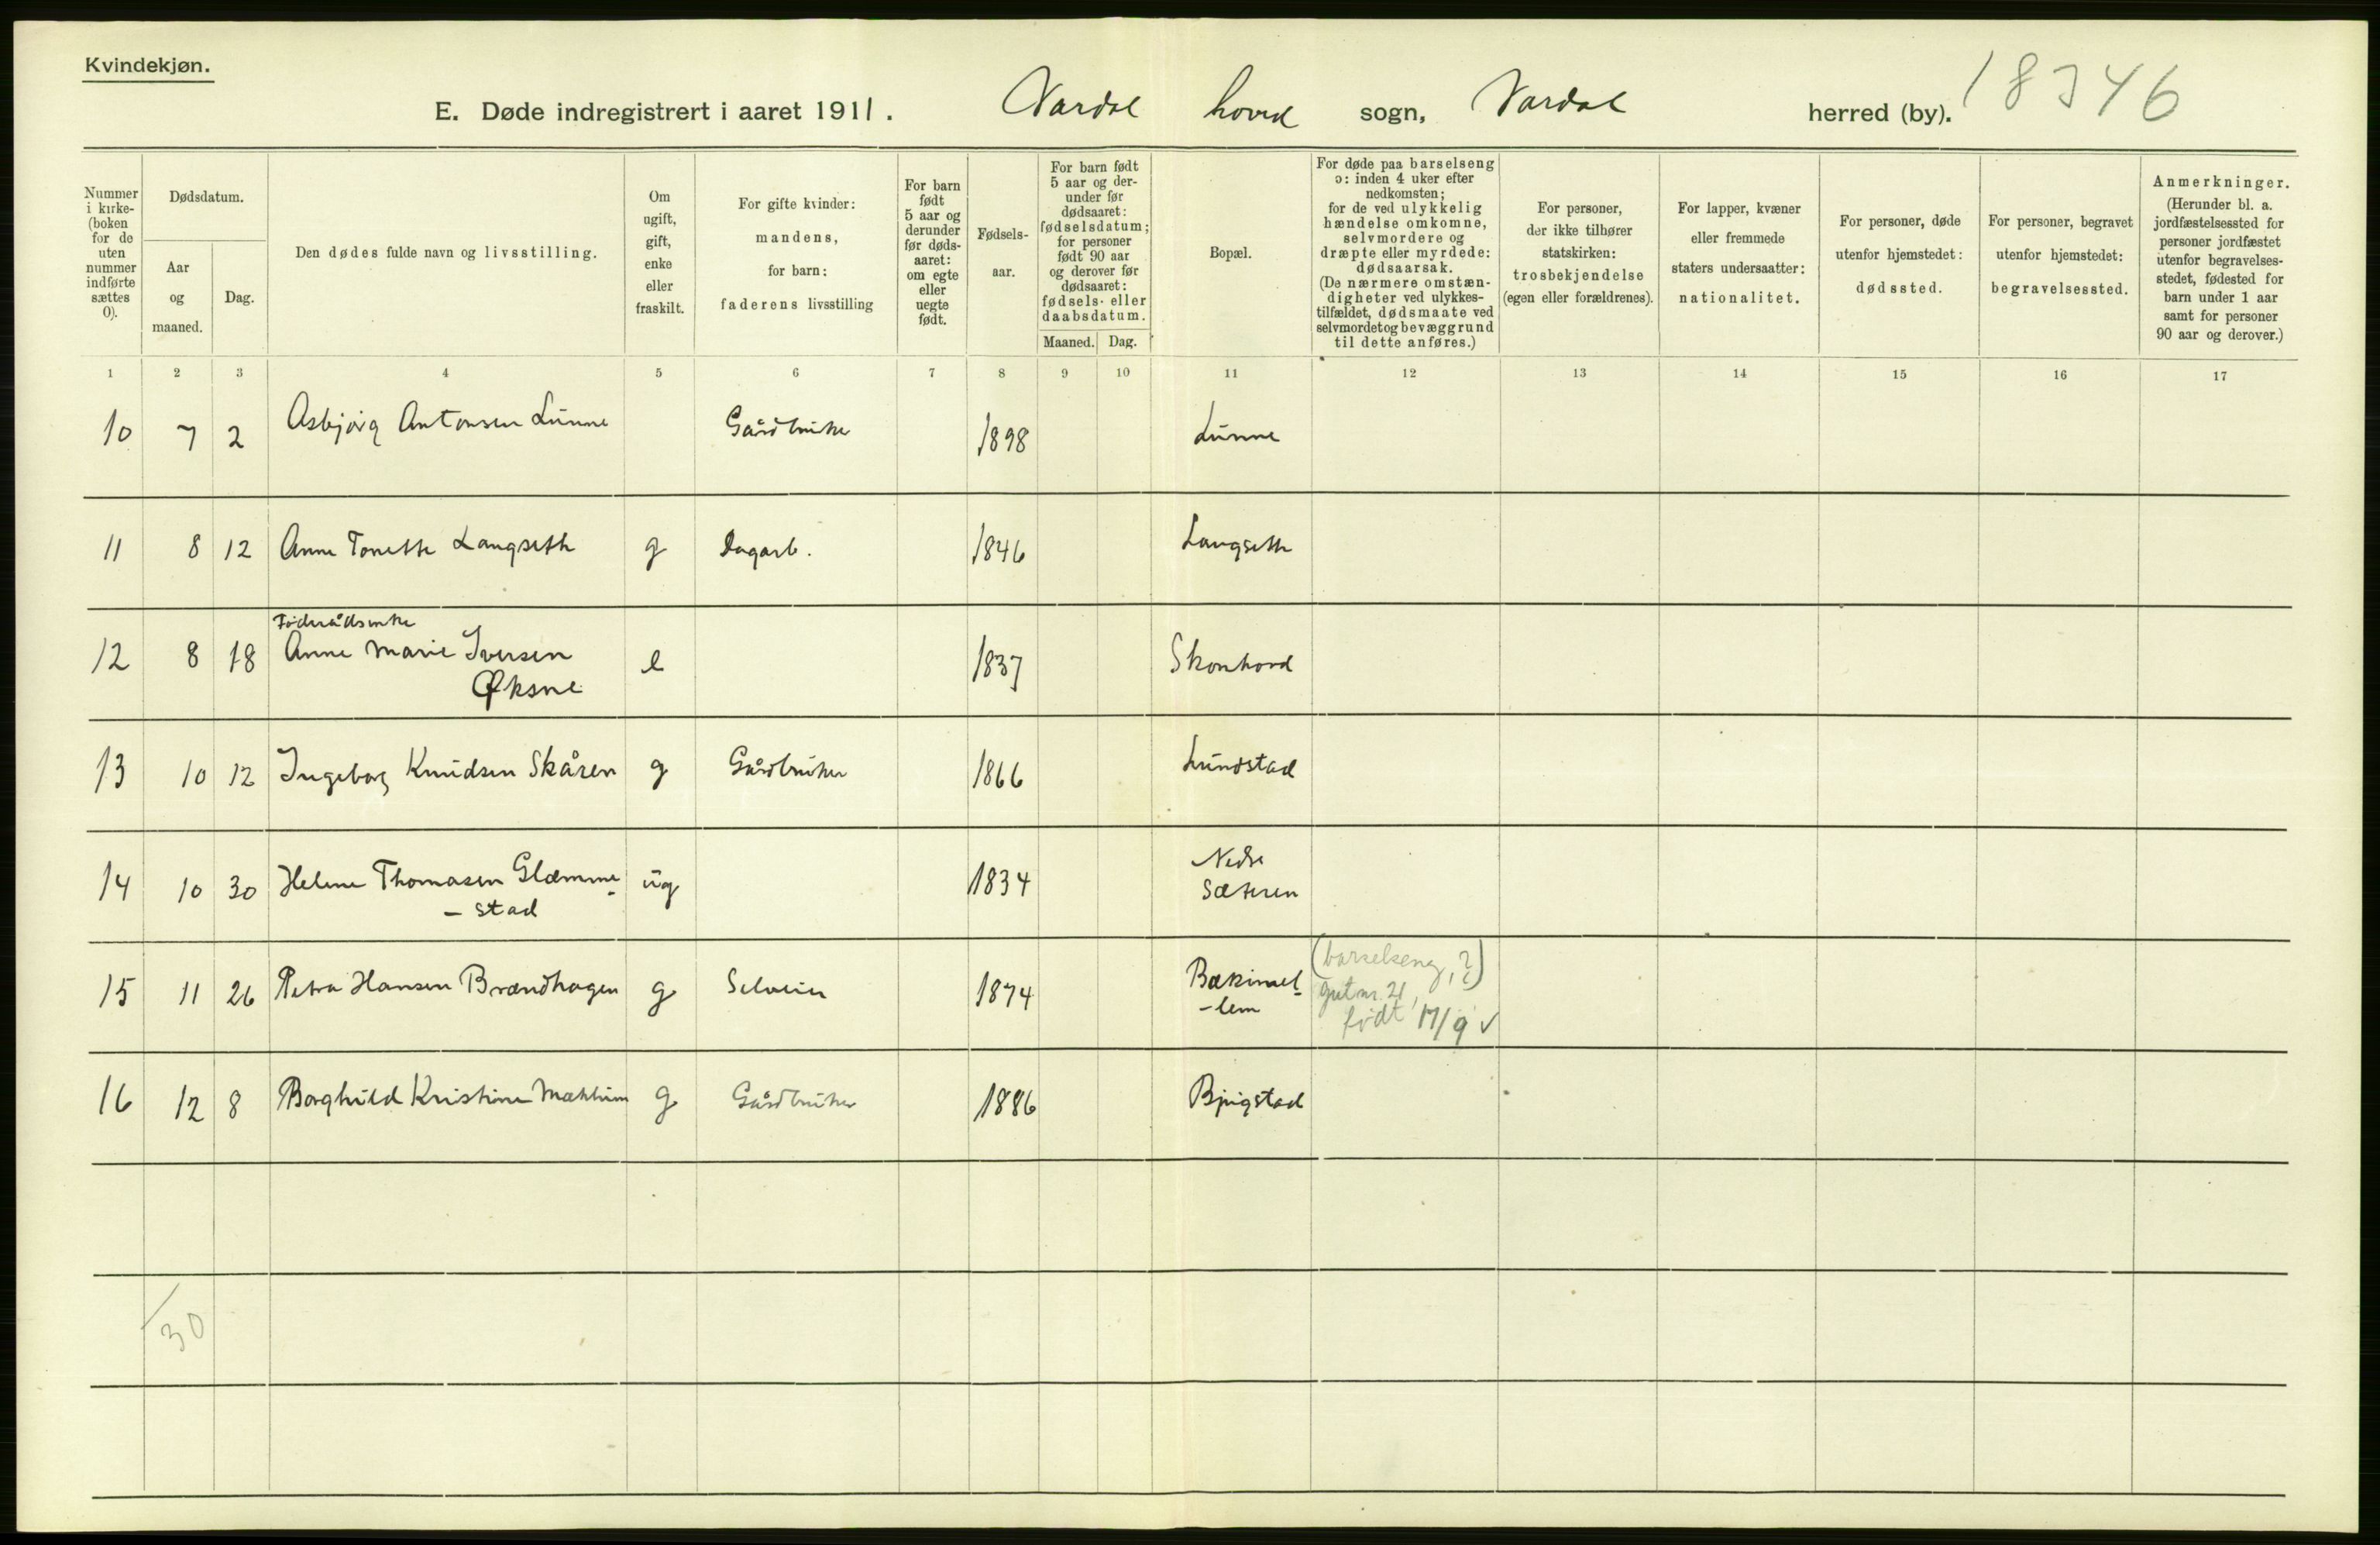 Kvindekjøn.
E. Døde indregistrert i aaret 1911. Vardal hoved sogn, Vardal herred (by). 18346
Nummer i kirkeboken for de uten nummer indførte sættes 0).
Dødsdatum.
Aar og maaned.
Dag.
Den dødes fulde navn og livsstilling.
Om ugift, gift, enke eller fraskilt.
For gifte kvinder: mandens, for barn: faderens livsstilling
For barn født 5 aar og derunder før dødsaaret: om egte eller uegte født.
Fødselsaar.
For barn født 5 aar og derunder før dødsaaret: fødselsdatum; for personer født 90 aar og derover før dødsaaret: fødsels- eller daabsdatum.
Maaned. Dag.
Bopæl.
For døde paa barselseng ɔ: inden 4 uker efter nedkomsten; for de ved ulykkelig hændelse omkomne, selvmordere og dræpte eller myrdede: dødsaarsak. (De nærmere omstændigheter ved ulykkestilfældet, dødsmaate ved selvmordet og bevæggrund til dette anføres.)
For personer, der ikke tilhører statskirken: trosbekjendelse (egen eller forældrenes).
For lapper, kvæner eller fremmede staters undersaatter: nationalitet.
For personer, døde utenfor hjemstedet: dødssted.
For personer, begravet utenfor hjemstedet: begravelsessted.
Anmerkninger. (Herunder bl. a. jordfæstelsessted for personer jordfæstet utenfor begravelsesstedet, fødested for barn under 1 aar samt for personer 90 aar og derover.)
1 2 3 4 5 6 7 8 9 10 11 12 13 14 15 16 17
10 7 2 Asbjørg Antonsen Lunne Gårdbruker 1898 Lunne
11 8 12 Anne Tonette Langseth g Dagarb. 1846 Langseth
Føderådsenke
12 8 18 Anne Marie Iversen e 1837 Skonhovd
Øksne
13 10 12 Ingeborg Knudsen Skåren g Gårdbruker 1866 Lundstad
14 10 30 Helene Thomasen Glæmme- ug 1834 Nedre
-stad Sæteren
15 11 26 Petra Hansen Brændhagen g Selveier 1874 Bækimel-
-lem
(barselseng, ?)
gut nr. 21,
født 17/9 ✓
16 12 8 Borghild Kristine Mæhlum g Gårdbruker 1886 Bjugstad
30